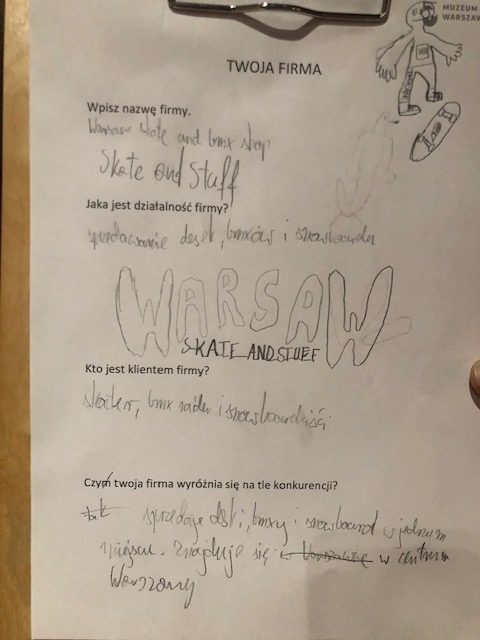 MUZEUM
WARSZAW
TWOJA FIRMA
Wpisz nazwę firmy.
Warsaw skate and bmx shop
Skate and Staff
Jaka jest działalność firmy?
sprzedawanie desek, bmxów i snowboarda
WARSAW
SKATE AND STUFF
Kto jest klientem firmy?
skater, bmx rider i snowboardziści
Czym twoja firma wyróżnia się na tle konkurencji?
sprzedaje deski, bmxy i snowboard w jednym
miejscu. Znajduje się w centrum
Warszawy